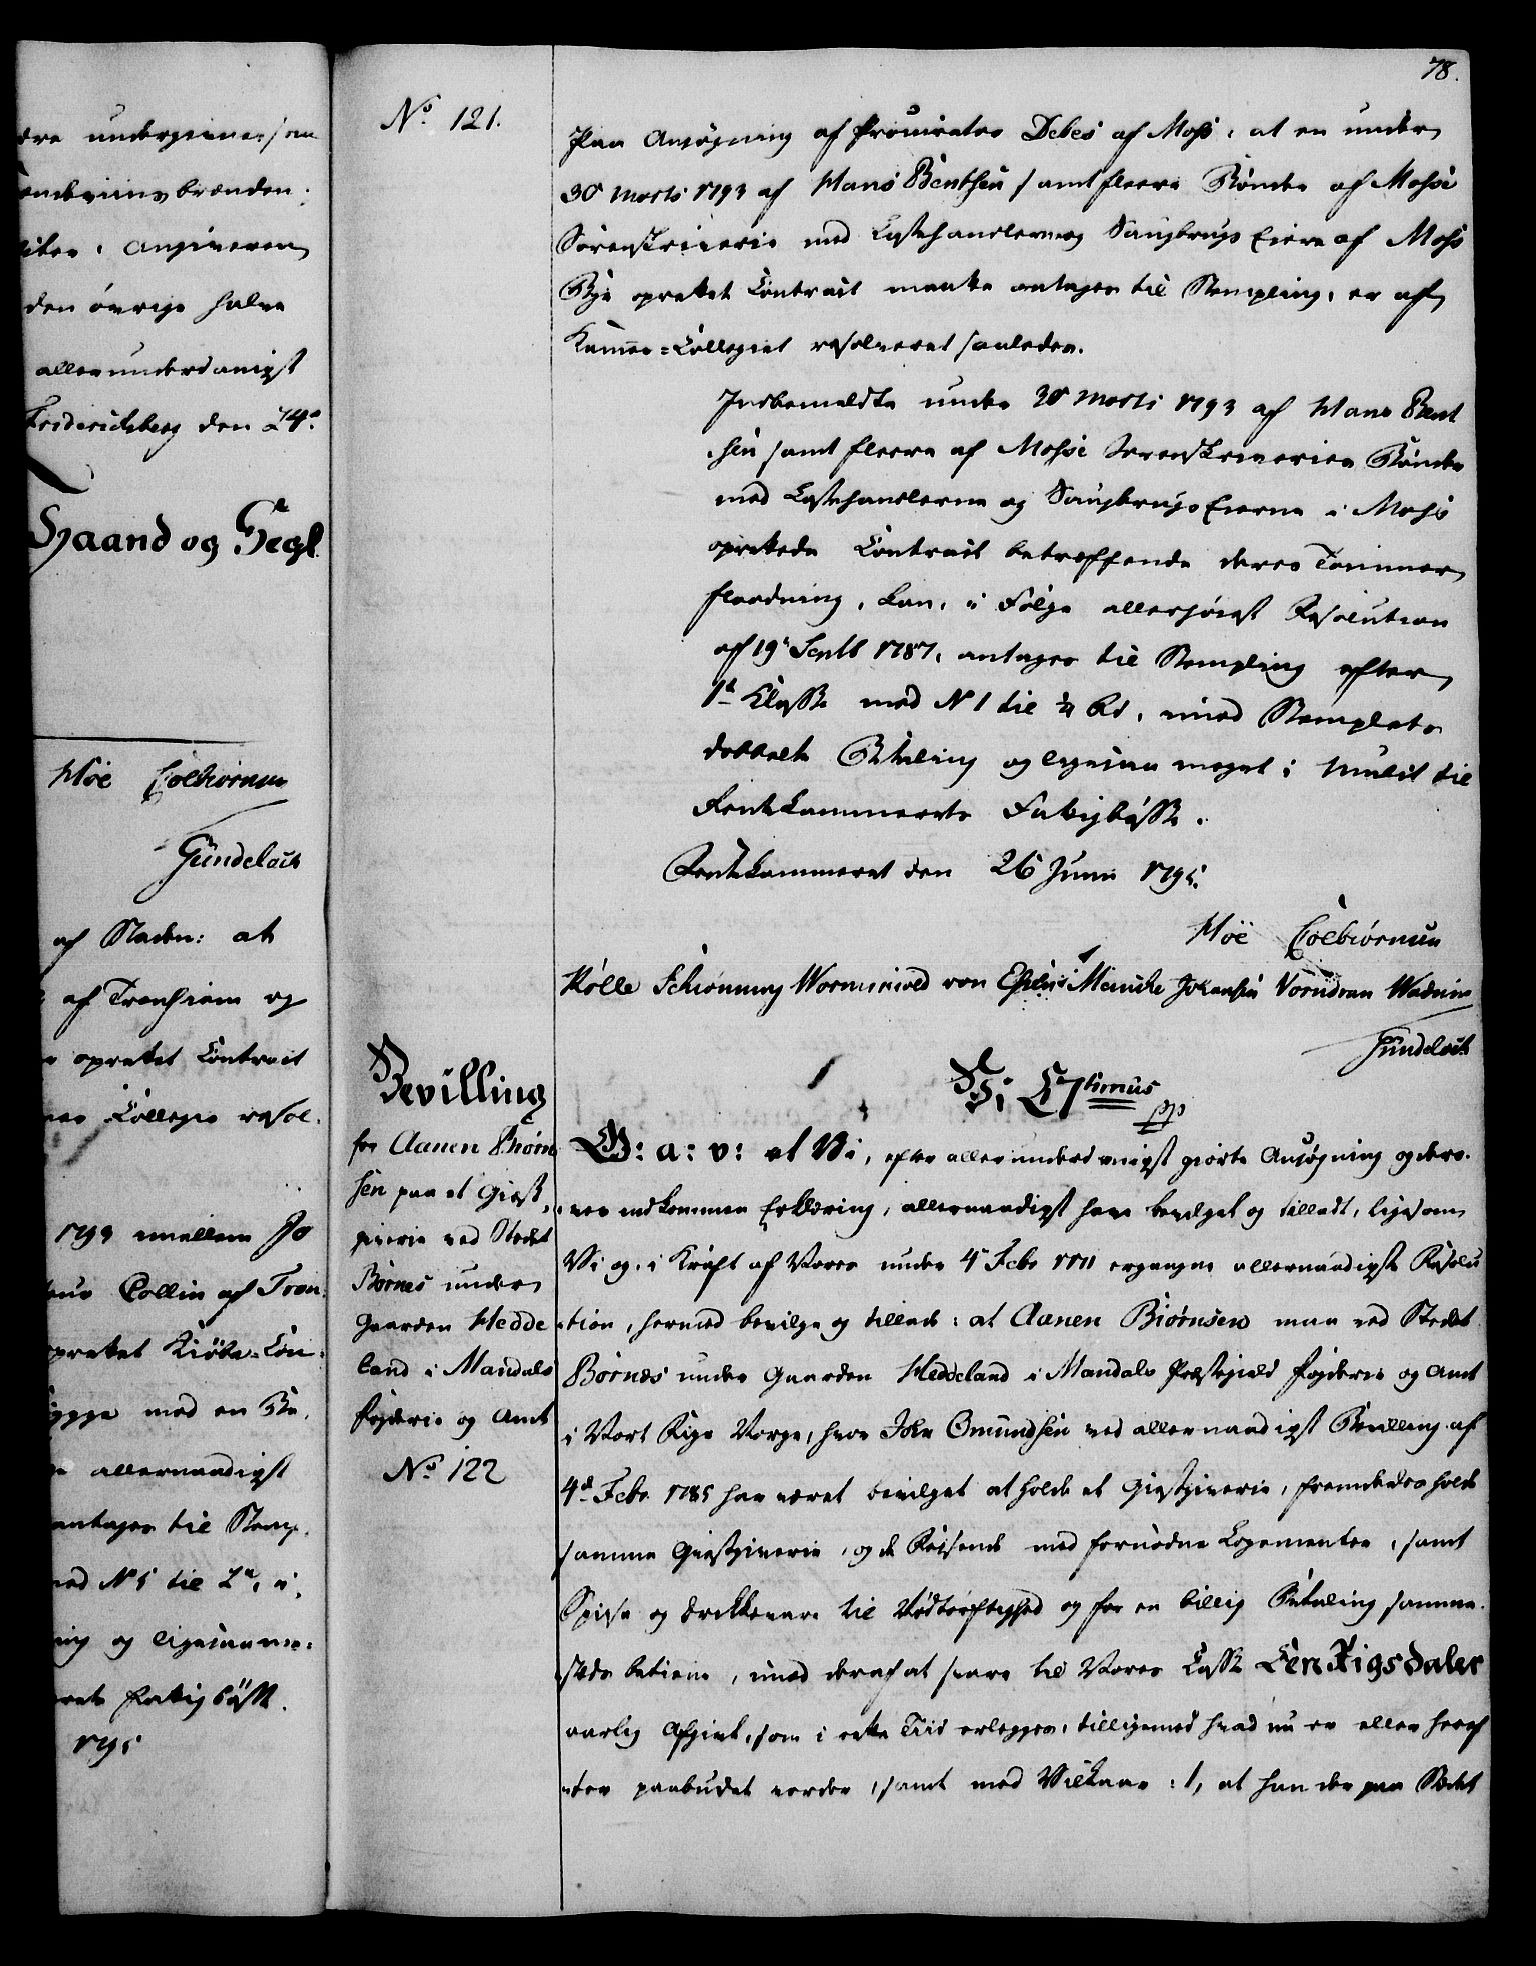 dre undergivne, som
brænden.
Angiveren
den øvrige halve
allerunderdanigst
Friderichsberg den 24de
Haand og Segl.
Höe Colbiørnsen
Gündelach
af Staden: at
af Tronhiem og
oprettet Contract
Collegio resol-
1793 imellem Jo
Collin af Tron-
oprettet Kiøbe-Con-
med en
allernaadigst
antages til Stemp-
med N 5 til
og ligesaame-
Fattigbösse.
1795
78.
No. 121.
Paa Ansøgning af Procurator Debes af Moss, at en under
30 Martii 1793 af Hans Benthsen samt fleere Bönder af Mosse
Sorenskriverie med Lasthandlerne og Saugbrugs Eiere af Moss
Bye oprettet Contract maatte antages til Stempling, er af
Kammer-Collegiet resolveret saaledes.
Indbemeldte under 30 Martii 1793 af Hans Bent
sen samt fleere af Mosse Sorenskriveries Bönder
med Lasthandlerne og Saugbrugs Eierne i Moss
oprettede Contract betreffende deres Tømmer
flødning, kan, i Følge allerhøiest Resolution
af 19 Septb 1787, antages til Stempling efter
1te Classe med N 1 til Rd, imod Stemplets
dobbelte Betaling og ligesaa meget i Mulct til
Rentekammerets Fattigbösse.
Rentekammeret den 26 Junii 1795.
Höe Colbiørnsen
Rölle Schionning Wormskiold von Essen Meinche Johansen Vorndran Wadum
Gündelach
Bevilling
for Aanen Biørn
sen paa et Giest-
giverie ved Stedet
Börnes under
Gaarden Hedde
land i Mandals
Fogderie og Amt
No. 122
Vi C 7timus
pp
G: a: v: at Vi, efter allerunderdanigst giorte Ansøgning og dero-
ver indkommen Erklæring, allernaadigst have bevilget og tilladt, ligesom
Vi og, i Kraft af Vores under 4 Febr 1771 ergangne allernaadigste Resolu
tion, hermed bevilge og tillade: at Aanen Biørnsen maa ved Stedet
Börnes under Gaarden Heddeland i Mandals Præstegield Fogderie og Amt
i Vort Rige Norge, hvor John Omundsen ved allernaadigst Bevilling af
4de Febr 1785 har været bevilget at holde et Giestgiverie, fremdeles holde
samme Giestgiverie, og de Reisende med fornødne Logementer, samt
Spise og Drikkevare til Nødtørftighed og for en billig Betaling samme-
steds betiene, imod deraf at svare til Vores Casse Een Rigsdaler
aarlig Afgivt, som i rette Tiid erlegges, tilligemed hvad nu er eller heref
ter paabudet vorder, samt med Vilkaar: 1, at han der paa Stedet